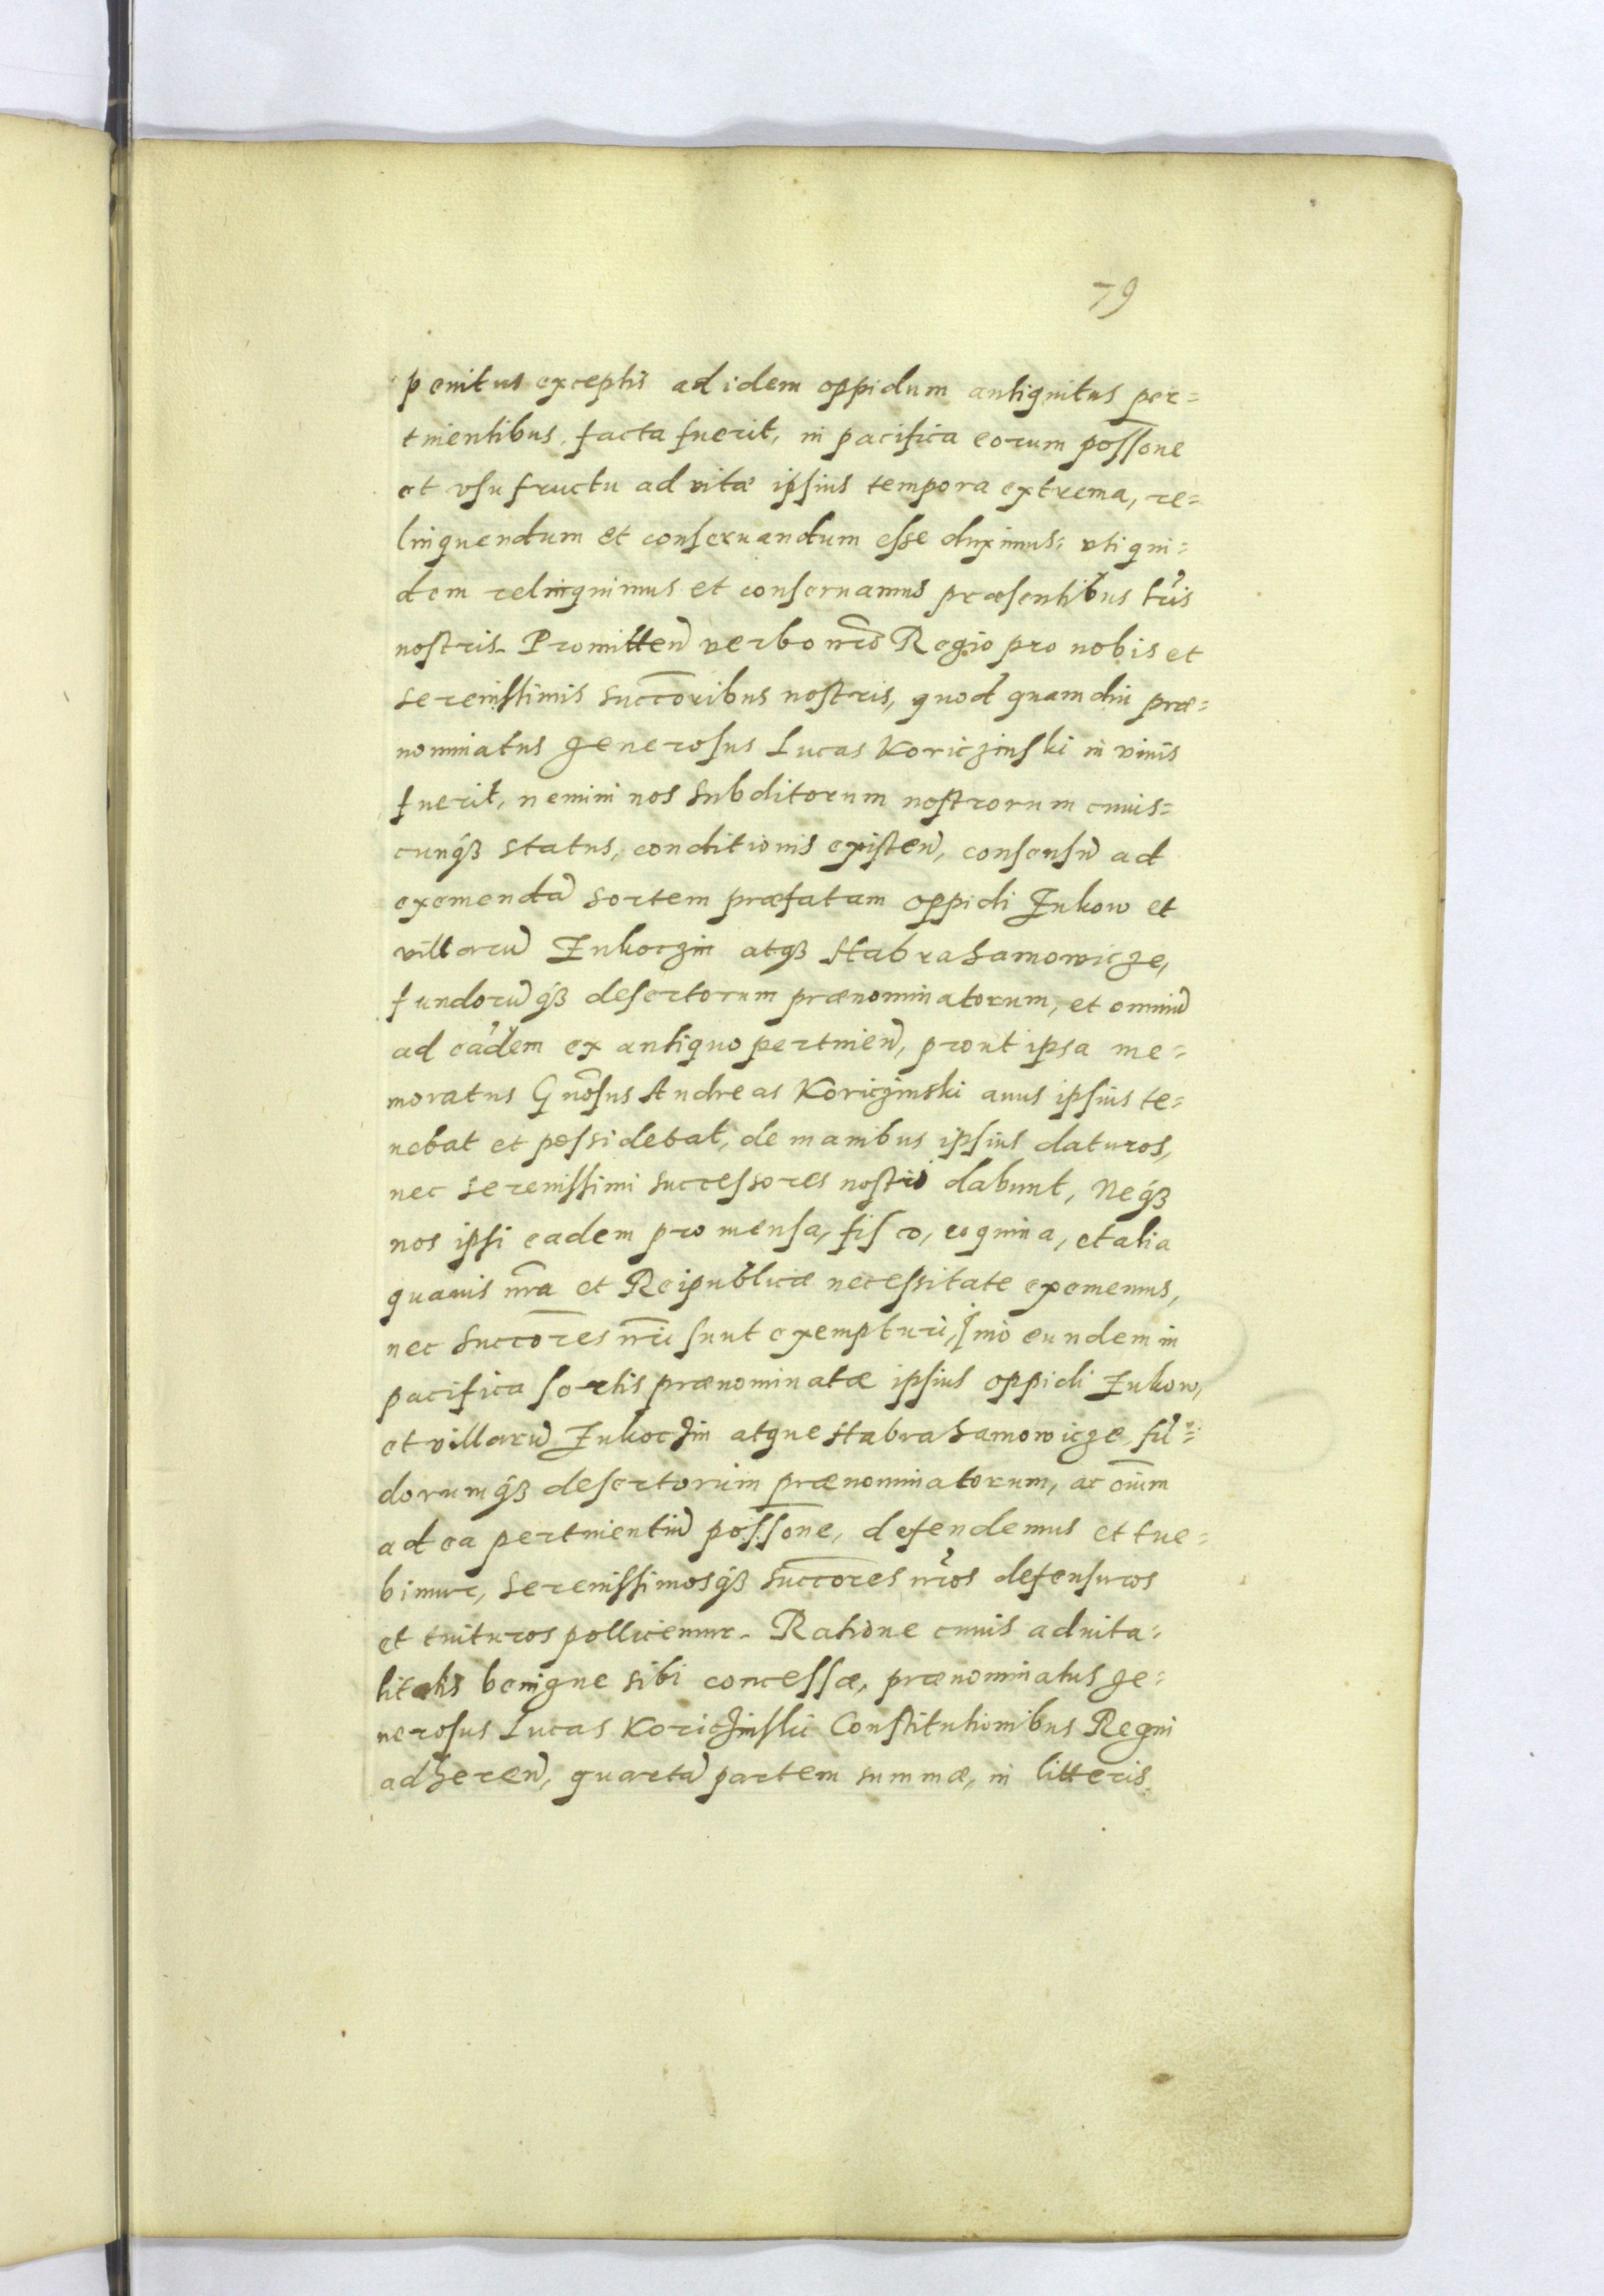 79
penitus exceptis ad idem oppidum antiquitus per=
tinentibus, facta fuerit, in pacifica eorum possone
et vsufructu ad vitæ ipsius tempora extrema, re=
linquendum et conseruandum esse duximus: vti qui=
dem relinquimus et conseruamus præsentibus lris
nostris. Promitten verbo nro Regio pro nobis et
serenissimis succoribus nostris, quod quamdiu præ=
nominatus generosus Lucas Koriczinski in viuis
fuerit, nemini nos subditorum nostrorum cuius=
cunqȝ status, conditionis existen, consensũ ad
exemendã sortem præfatam oppidi Zukow et
villarũ Zukoczin atqȝ Habrahamowicze,
fundorũqȝ desertorum prænominatorum, et omniũ
ad eãdem ex antiquo pertinen, prout ipsa me=
moratus Gnosus Andreas Koriczinski auus ipsius te=
nebat et possidebat, de manibus ipsius daturos,
nec serenissimi successores nostri dabunt, Neqȝ
nos ipsi eadem pro mensa, fisco, coquina, et alia
quauis nra et Reipublicæ necessitate exememus,
nec succores nri sunt exempturi, Imo eundem in
pacifica sortis prænominatæ ipsius oppidi Zukow,
et villarũ Zukoczin atque Habrahamowicze, fũ=
dorumqȝ desertorum prænominatorum, ac oium
ad ea pertinentiũ possone, defendemus et tue=
bimur, serenissimosqȝ succores nros defensuros
et tuituros pollicemur. Ratione cuius aduita=
litatis benigne sibi concessæ, prænominatus ge=
nerosus Lucas Koriczinski Constitutionibus Regni
adheren, quartã partem summæ, in litteris